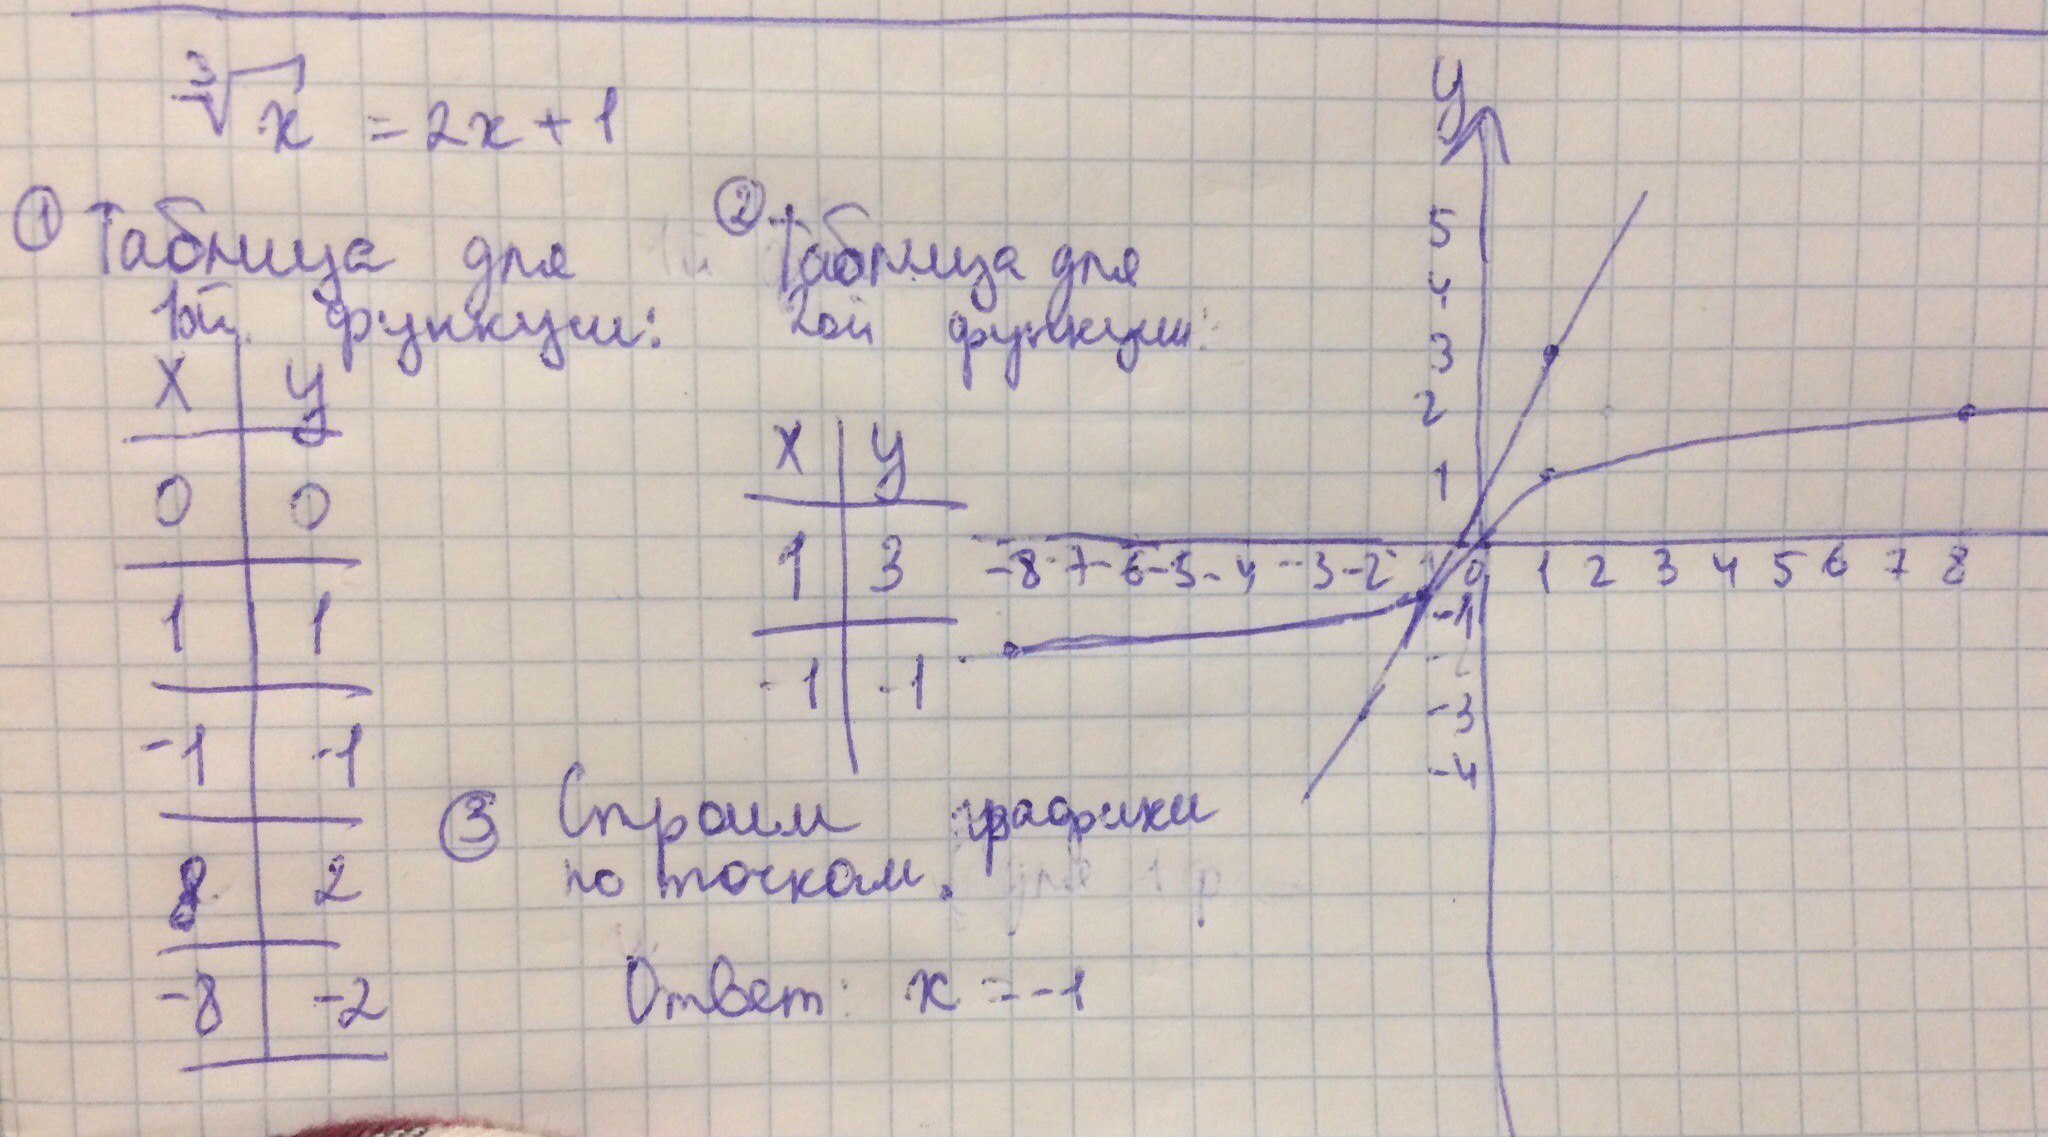 ∛x = 2x + 1
① Таблица для
1ой функции:
x y
0 0
1 1
-1 -1
8 2
-8 -2
② Таблица для
2ой функции:
x y
1 3
-1 -1
③ Строим графики
по точкам.
Ответ: x = -1
y
5
4
3
2
1
-8 -7 -6 -5 -4 -3 -2 -1 0 1 2 3 4 5 6 7 8
-1
-2
-3
-4